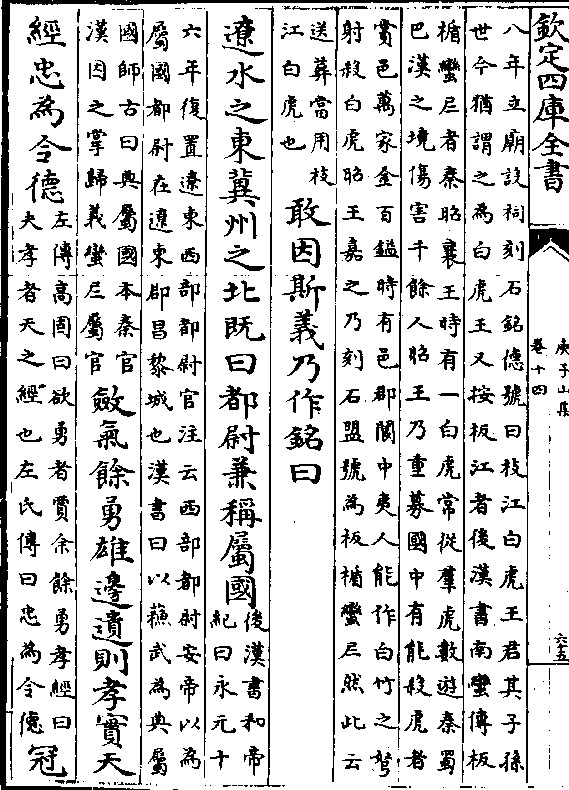 欽定四庫全書
庾子山集
卷十四
六五
八年立廟設祠刻石銘德號曰枝江白虎王君其子孫
世今猶謂之為白虎王又按板江者後漢書南蠻傳板
楯蠻𡰥者秦昭襄王時有一白虎常從羣虎數遊秦蜀
巴漢之境傷害千餘人昭王乃重募國中有能殺虎者
賞邑萬家金百鎰時有邑郡閬中夷人能作白竹之弩
射殺白虎昭王嘉之乃刻石盟號為板楯蠻𡰥然此云
送葬當用枝
江白虎也
敢因斯義乃作銘曰
遼水之東冀州之北既曰都尉兼稱屬國
後漢書和帝
紀曰永元十
六年復置遼東西部都尉官注云西部都尉安帝以為
屬國都尉在遼東郡昌黎城也漢書曰以蘓武為典屬
國師古曰典屬國本秦官
漢因之掌歸義蠻𡰥屬官
斂氣餘勇雄邊遺則孝實天
經忠為令德
左傳高固曰欲勇者賈余餘勇孝經曰
夫孝者天之經也左氏傳曰忠為令德
冠